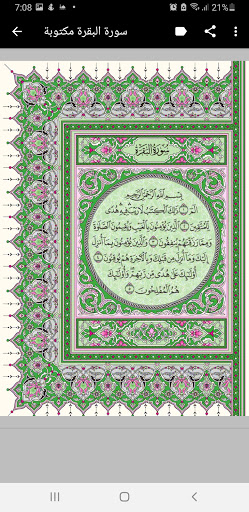 7:08
21%
سورة البقرة مكتوبة
سُورَةُ البَقَرَةِ
بِسْمِ اللَّهِ الرَّحْمَٰنِ الرَّحِيمِ
الٓمٓ ۝١ ذَٰلِكَ ٱلْكِتَٰبُ لَا رَيْبَ ۛ فِيهِ ۛ هُدًى
لِّلْمُتَّقِينَ ۝٢ ٱلَّذِينَ يُؤْمِنُونَ بِٱلْغَيْبِ وَيُقِيمُونَ ٱلصَّلَوٰةَ
وَمِمَّا رَزَقْنَٰهُمْ يُنفِقُونَ ۝٣ وَٱلَّذِينَ يُؤْمِنُونَ بِمَآ أُنزِلَ
إِلَيْكَ وَمَآ أُنزِلَ مِن قَبْلِكَ وَبِٱلْءَاخِرَةِ هُمْ يُوقِنُونَ ۝٤
أُو۟لَٰٓئِكَ عَلَىٰ هُدًى مِّن رَّبِّهِمْ ۖ وَأُو۟لَٰٓئِكَ
هُمُ ٱلْمُفْلِحُونَ ۝٥